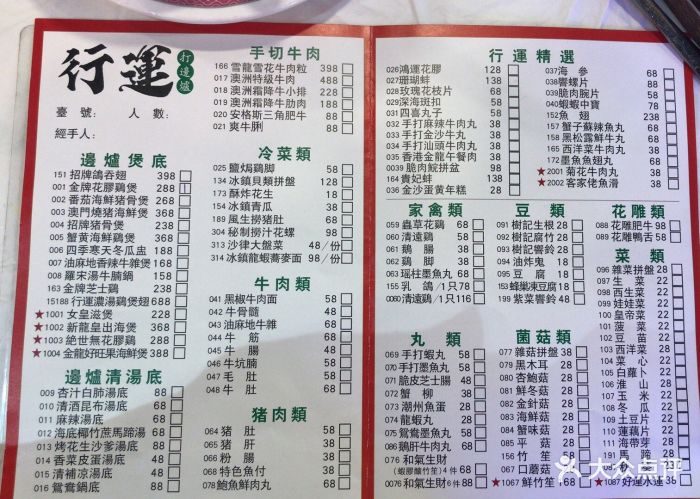 行運
打邊爐
臺號： 人數：
經手人：
邊爐煲底
151 招牌鴿吞翅 398
001 金牌花膠鷄煲 288
002 番茄海鮮豬骨煲 268
003 澳門燒豬海鮮煲 368
004 招牌豬骨煲 238
005 蟹黃海鮮鷄煲 368
006 四季寒天冬瓜盅 368
007 油麻地香辣牛雜煲 168
008 羅宋湯牛腩鍋 158
163 金牌芝士鷄 238
15188 行運濃湯鷄煲翅 688
★1001 女皇滋煲 288
★1002 新龍皇出海煲 388
★1003 絕世無花膠鷄 388
★1004 金龍好旺果海鮮煲 388
邊爐清湯底
009 杏汁白肺湯底 88
010 清酒昆布湯底 68
011 麻辣湯底 68
012 海底椰竹蔗馬蹄湯 68
013 烤花生沙爹湯底 68
014 香菜皮蛋湯底 58
015 清補凉湯底 48
016 鴛鴦鍋底 88
手切牛肉
166 雪龍雪花牛肉粒 398
017 澳洲特級牛肉 488
018 澳洲霜降牛小排 228
019 澳洲霜降牛肋肉 188
020 安格斯三角肥牛 88
021 爽牛脷 88
冷菜類
025 鹽焗鷄脚 58
134 冰鎮貝類拼盤 128
173 酥炸花生 18
174 冰鎮青瓜 38
189 風生撈豬肚 68
304 秘制撈汁花螺 98
313 沙律大盤菜 48 /份
314 冰鎮龍蝦蕎麥面 98 /份
牛肉類
041 黑椒牛肉面 58
042 牛骨髓 58
043 油麻地牛雜 68
044 牛筋 58
045 牛腸 58
046 牛坑腩 58
047 毛肚 58
048 牛肚 58
豬肉類
064 豬肚 58
065 豬肝 38
066 豬粉腸 58
068 特色魚付 38
078 鮑魚鮮肉丸 68
行運精選
026 鴻運花膠 128
027 珊瑚蚌 138
028 玫瑰花枝片 68
029 深海斑扣 68
031 四喜丸子 68
032 手打麻辣牛肉丸 58
033 手打金沙牛丸 58
034 手打汕頭牛肉丸 58
035 香港金龍午餐肉 38
039 脆肉脘拼盆 98
164 貴妃蚌 98
036 金沙蛋黃年糕 28
037 海參 68
038 響螺片 88
039 脆肉脘片 48
040 蝦蝦中寶 68
152 魚翅 238
157 蟹子蘇辣魚丸 68
158 黑松露鮮牛丸 68
165 西洋菜牛肉丸 68
172 墨魚魚翅丸 68
★2001 菊花牛肉丸 68
★2002 客家佬魚滑 58
家禽類
059 蟲草花鷄 68
060 清遠鷄 68
061 鵝腸 68
062 鷄腸 38
063 瑶柱墨魚丸 68
155 乳鴿/1只 78
0060 清遠鷄/1只 116
丸類
069 手打蝦丸 58
070 手打墨魚丸 58
071 脆皮芝士腸 48
072 蟹柳 38
073 潮州魚蛋 28
074 魚腐 28
075 鴛鴦墨魚丸 68
086 鵝肝牛肉丸 68
076 和氣生財
(蝦膠釀竹笙)4件 68
0076 和氣生財6件 98
豆類
091 樹記生根 28
092 樹記腐竹 28
093 樹記響鈴 28
094 油炸鬼 18
095 豆腐 18
153 蜂巢凍豆腐 18
199 紫菜響鈴 38
菌菇類
077 雜菇拼盤 38
079 黑木耳 28
080 杏鮑菇 28
081 鮮鱿菇 28
082 金針菇 28
083 海鮮菇 28
084 蟹味菇 28
085 平菇 28
156 竹笙 38
167 口蘑菇 28
★1067 鮮竹笙 68
花雕類
088 花雕肥牛 98
089 花雕鴨舌 58
菜類
096 雜菜拼盤 38
097 生菜 22
098 西生菜 22
099 娃娃菜 22
100 皇帝菜 22
101 菠菜 22
102 豆苗 22
103 西洋菜 22
104 菜心 22
105 白蘿卜 22
106 淮山 22
107 玉米 22
108 冬瓜 22
109 土豆片 22
110 蓮藕片 22
111 海帶芽 22
★1067 好運小蓮 38
大众点评